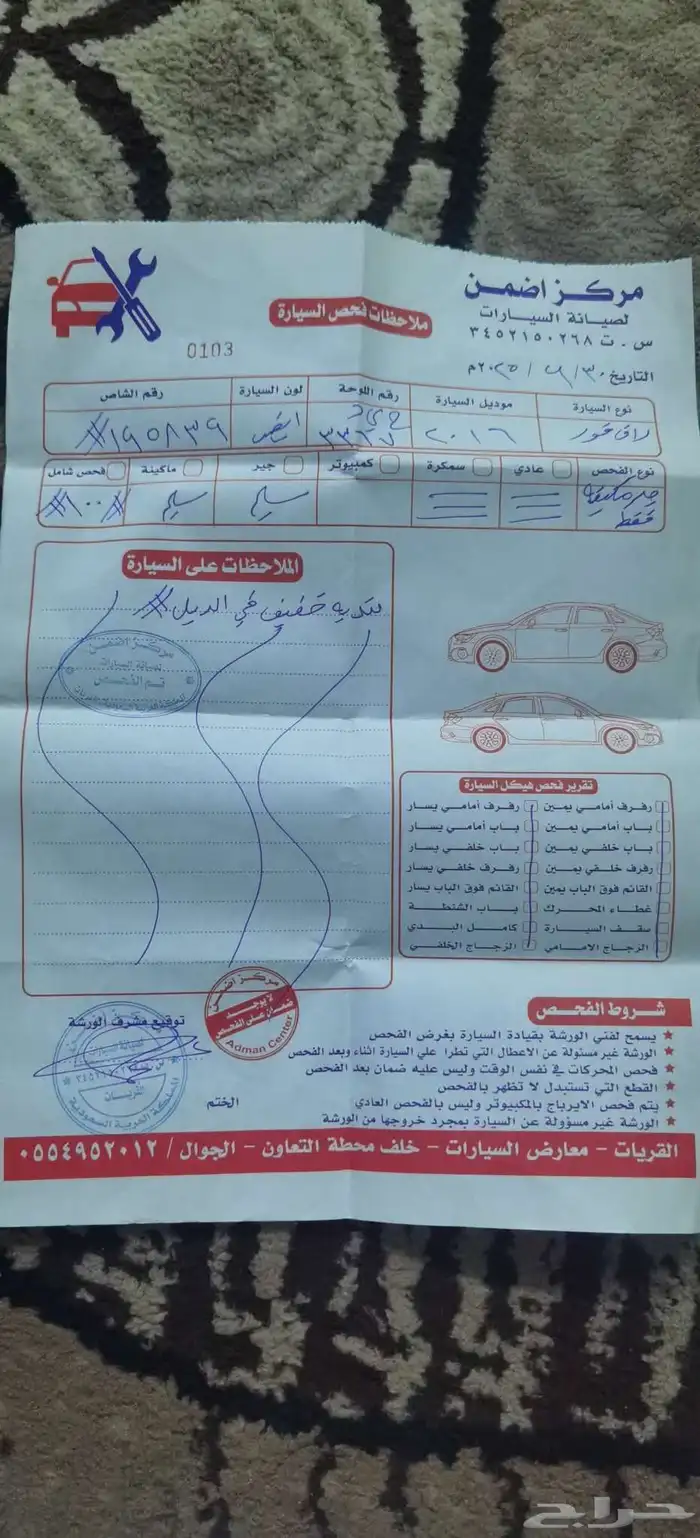 مركز اضمن
لصيانة السيارات
س . ت ٣٤٥٢١٥٠٢٦٨
ملاحظات فحص السيارة
0103
التاريخ ٣٠ / ٦ / ٢٠٢٥م
نوع السيارة موديل السيارة رقم اللوحة لون السيارة رقم الشاص
راف فور ٢٠١٦ ابيض #١٩٥٨٣٩
نوع الفحص عادي سمكرة كمبيوتر جير ماكينة فحص شامل
جير مكينه فقط سليم سليم #١٠٠#
الملاحظات على السيارة
تنديه خفيف في الديل #
مركز اضمن
لصيانة السيارات
تم الفحص
تقرير فحص هيكل السيارة
رفرف أمامي يمين رفرف أمامي يسار
باب أمامي يمين باب أمامي يسار
باب خلفي يمين باب خلفي يسار
رفرف خلفي يمين رفرف خلفي يسار
القائم فوق الباب يمين القائم فوق الباب يسار
غطاء المحرك باب الشنطة
سقف السيارة كامل البدي
الزجاج الامامي الزجاج الخلفي
مركز اضمن
لا يوجد
ضمان على الفحص
Adman Center
شروط الفحص
يسمح لفني الورشة بقيادة السيارة بغرض الفحص
الورشة غير مسئولة عن الاعطال التي تطرا علي السيارة اثناء وبعد الفحص
فحص المحركات في نفس الوقت وليس عليه ضمان بعد الفحص
القطع التي تستبدل لا تظهر بالفحص
يتم فحص الايرباج بالمكبيوتر وليس بالفحص العادي
الورشة غير مسؤولة عن السيارة بمجرد خروجها من الورشة
توقيع مشرف الورشة
القريات
المملكة العربية السعودية
الختم
القريات - معارض السيارات - خلف محطة التعاون - الجوال / ٠٥٥٤٩٥٢٠١٢
حراج